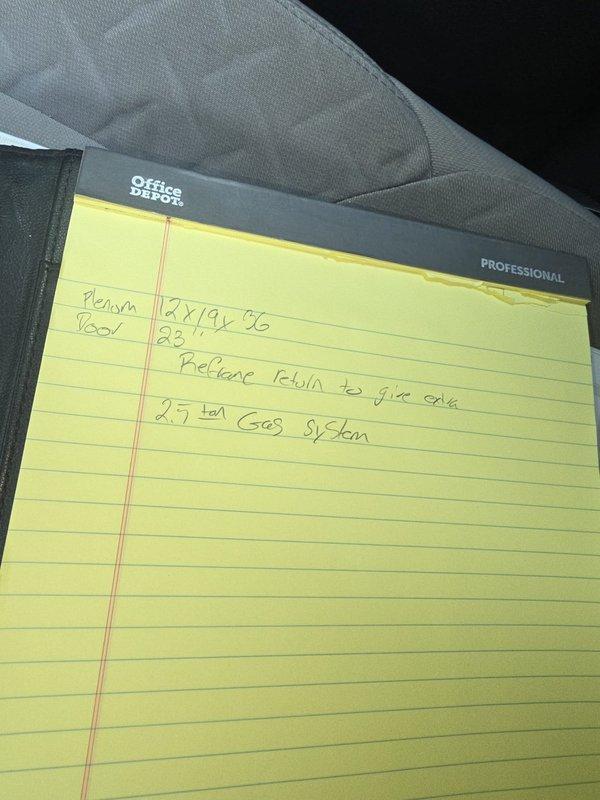 Office
DEPOT®
PROFESSIONAL
Plenum 12x19x36
Door 23"
Reframe return to give extra
2.5 ton Gas System